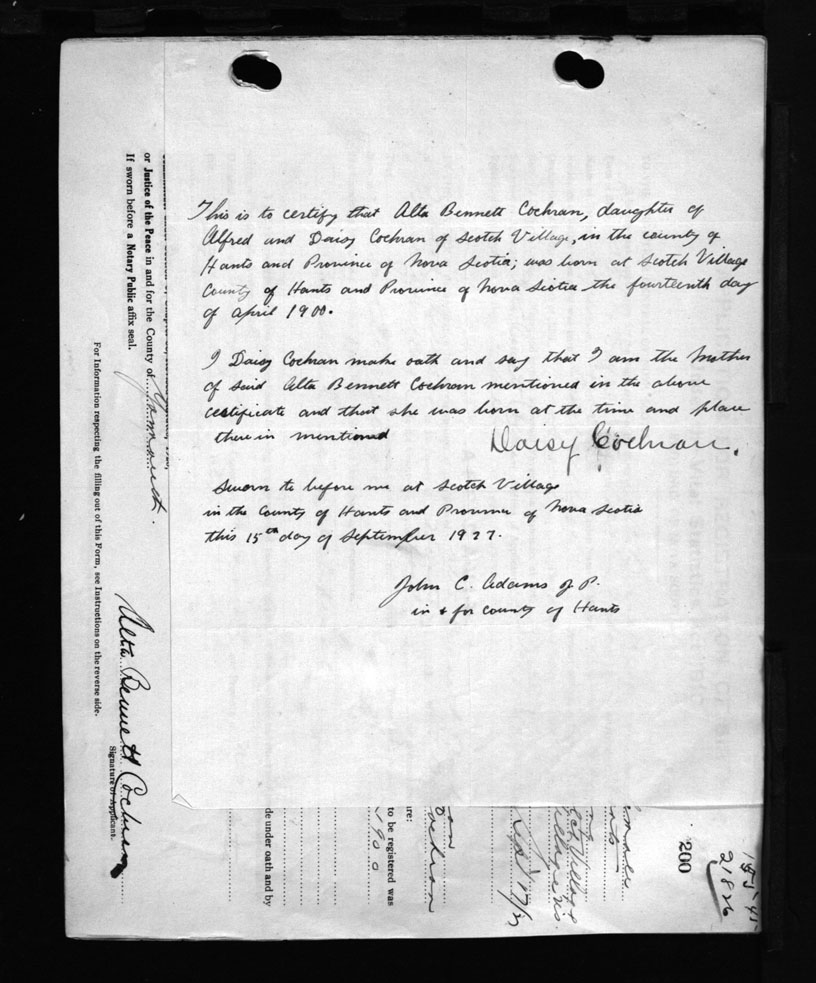 This is to certify that Alta Bennett Cochran, daughter of
Alfred and Daisy Cochran of Scotch Village, in the county of
Hants and Province of Nova Scotia; was born at Scotch Village
County of Hants and Province of Nova Scotia the fourteenth day
of April 1900.
I Daisy Cochran make oath and say that I am the Mother
of said Alta Bennett Cochran mentioned in the above
certificate and that she was born at the time and place
therein mentioned
Daisy Cochran.
Sworn to before me at Scotch Village
in the County of Hants and Province of Nova Scotia
this 15th day of September 1927.
John C. Adams J. P.
in & for County of Hants
or Justice of the Peace in and for the County of Yarmouth.
If sworn before a Notary Public affix seal.
Alta Bennett Cochran
Signature of Applicant.
For Information respecting the filling out of this Form, see Instructions on the reverse side.
200
21826
Village
to be registered was
1900
de under oath and by